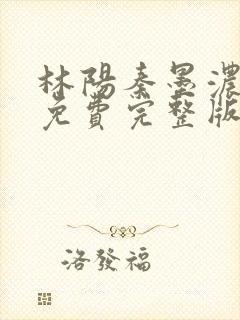 林陽秦墨濃
免費完整版
洛發福